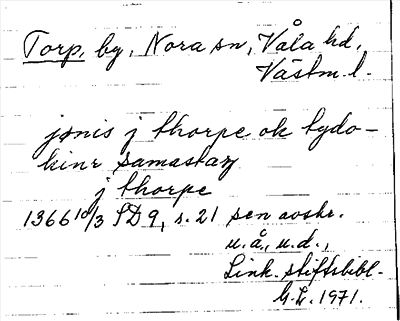 Torp, by, Nora sn, Våla hd,
Västm. l.
jønis j thorpe ok tydo-
kinr samastaz
j thorpe
1366 10/3 SD 9, s. 21 sen avskr.
u.å., u.d.,
Link. stiftsbibl.
G.L. 1971.